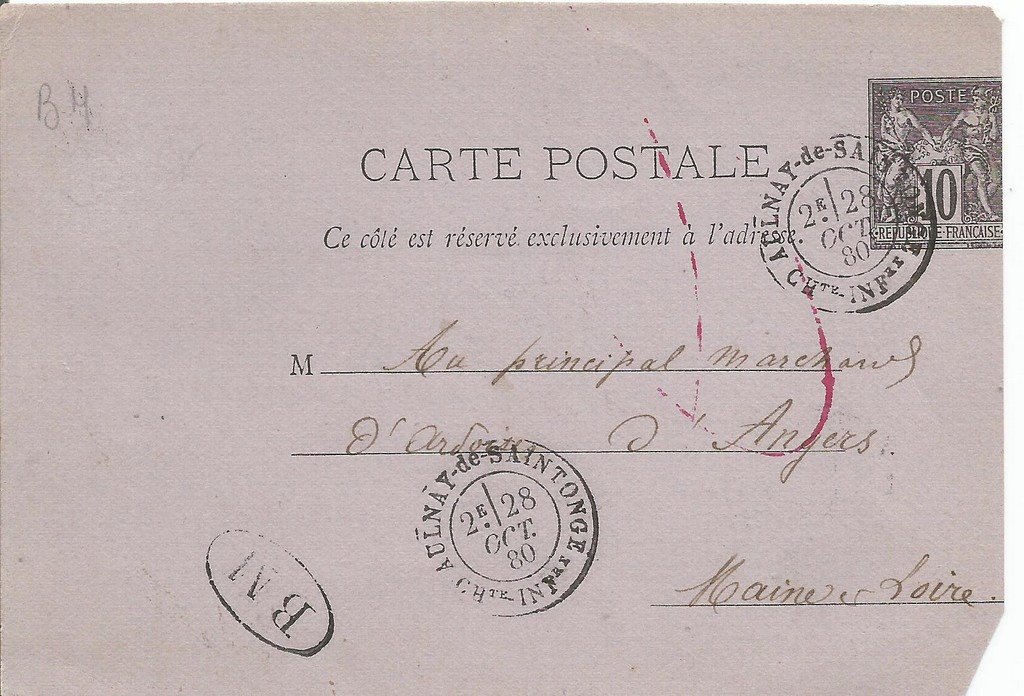 B.M
POSTE
10
REPUBLIQUE FRANCAISE
CARTE POSTALE
Ce côté est réservé exclusivement à l'adresse.
AULNAY-de-SAINTONGE
2E 28
OCT.
80
CHTE-INFRE
M Au principal marchand
d'ardoises d'Angers.
AULNAY-de-SAINTONGE
2E 28
OCT.
80
CHTE-INFRE
BM
Maine & Loire.